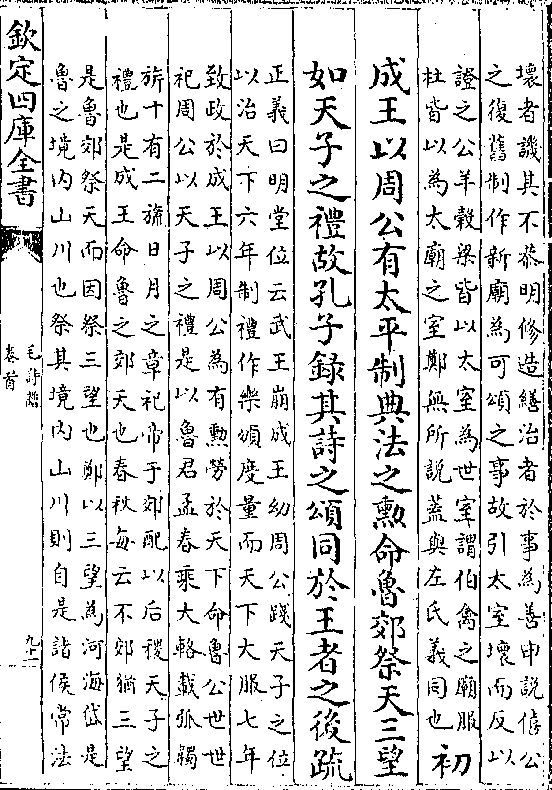 壞者譏其不恭明修造繕治者於事為善申說僖公
之復舊制作新廟為可頌之事故引太室壞而反以
證之公羊穀梁皆以太室為世室謂伯禽之廟服
杜皆以為太廟之室鄭無所說蓋與左氏義同也
初
成王以周公有太平制典法之勲命魯郊祭天三望
如天子之禮故孔子録其詩之頌同於王者之後疏
正義曰明堂位云武王崩成王幼周公踐天子之位
以治天下六年制禮作樂頒度量而天下大服七年
致政於成王以周公為有勲勞於天下命魯公世世
祀周公以天子之禮是以魯君孟春乘大輅載弧韣
旂十有二旒日月之章祀帝于郊配以后稷天子之
禮也是成王命魯之郊天也春秋每云不郊猶三望
是魯郊祭天而因祭三望也鄭以三望為河海岱是
魯之境内山川也祭其境内山川則自是諸侯常法
欽定四庫全書
毛詩譜
卷首
九十一